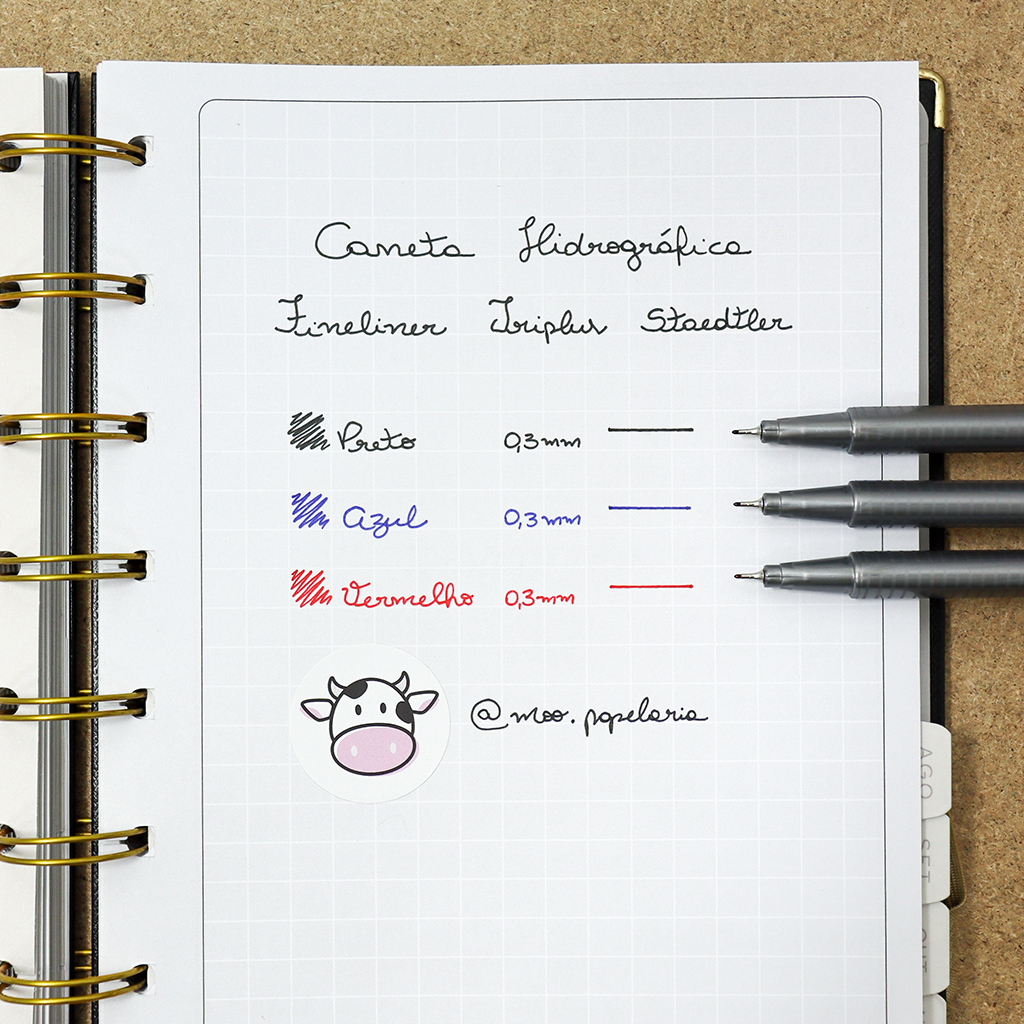 Caneta Hidrográfica
Fineliner Triplus Staedtler
Preto 0,3mm
Azul 0,3mm
Vermelho 0,3mm
@moo.papelaria
AGO
SET
OUT